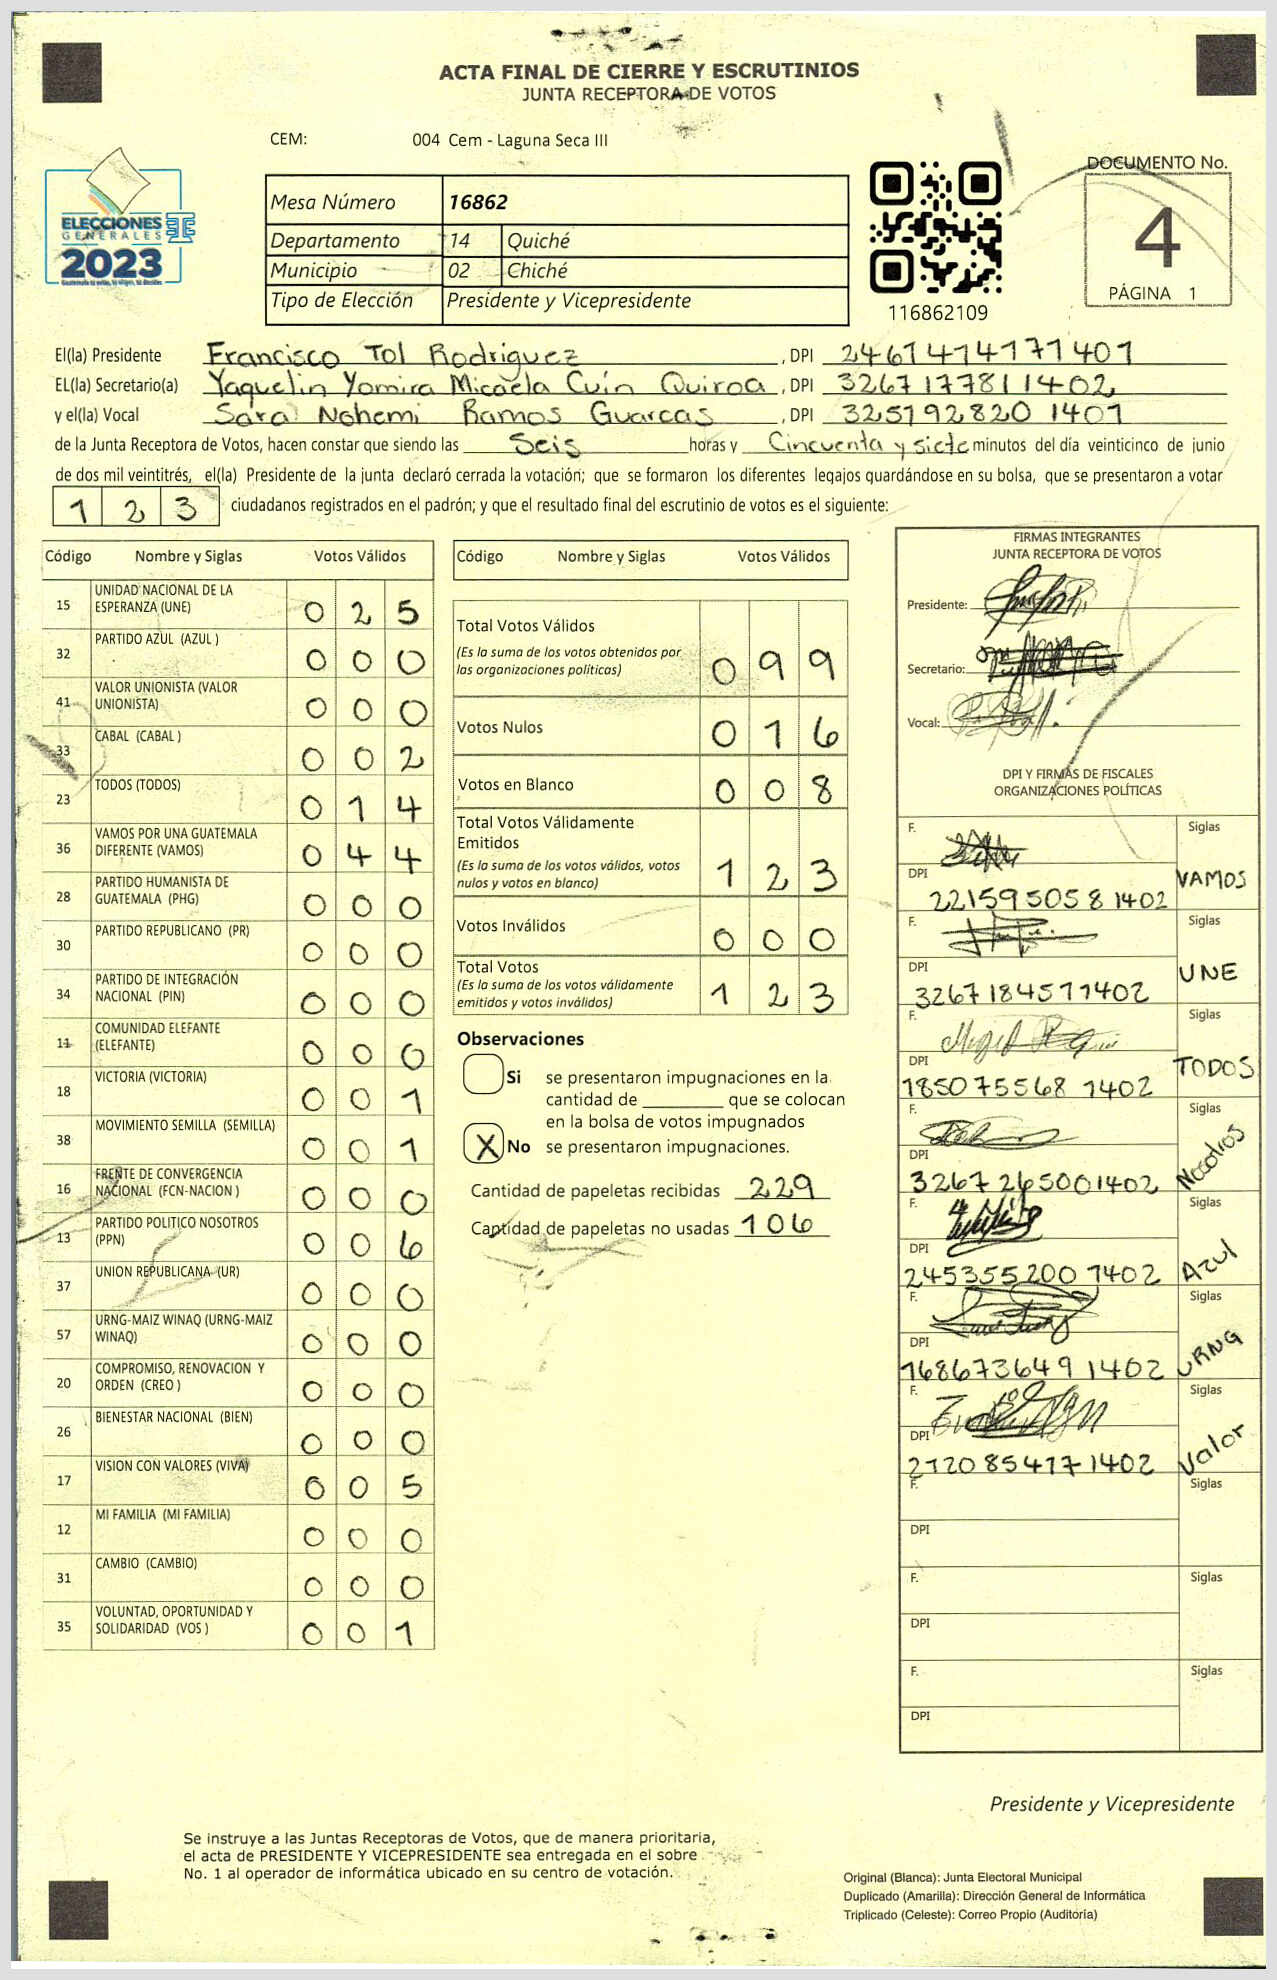 ACTA FINAL DE CIERRE Y ESCRUTINIOS
JUNTA RECEPTORA DE VOTOS
CEM: 004 Cem - Laguna Seca III
ELECCIONES
GENERALES
2023
Mesa Número 16862
Departamento 14 Quiché
Municipio 02 Chiché
Tipo de Elección Presidente y Vicepresidente
116862109
DOCUMENTO No.
4
PÁGINA 1
El(la) Presidente Francisco Tol Rodriguez, DPI 2461414171401
EL(la) Secretario(a) Yaquelin Yomira Micaela Cuín Quiroa, DPI 3267177811402
y el(la) Vocal Sara Nohemi Ramos Guarcas, DPI 3251928201401
de la Junta Receptora de Votos, hacen constar que siendo las Seis horas y Cincuenta y siete minutos del día veinticinco de junio
de dos mil veintitrés, el(la) Presidente de la junta declaró cerrada la votación; que se formaron los diferentes legajos guardándose en su bolsa, que se presentaron a votar
1 2 3 ciudadanos registrados en el padrón; y que el resultado final del escrutinio de votos es el siguiente:
Código Nombre y Siglas Votos Válidos
15 UNIDAD NACIONAL DE LA ESPERANZA (UNE) 0 2 5
32 PARTIDO AZUL (AZUL ) 0 0 0
41 VALOR UNIONISTA (VALOR UNIONISTA) 0 0 0
33 CABAL (CABAL ) 0 0 2
23 TODOS (TODOS) 0 1 4
36 VAMOS POR UNA GUATEMALA DIFERENTE (VAMOS) 0 4 4
28 PARTIDO HUMANISTA DE GUATEMALA (PHG) 0 0 0
30 PARTIDO REPUBLICANO (PR) 0 0 0
34 PARTIDO DE INTEGRACIÓN NACIONAL (PIN) 0 0 0
11 COMUNIDAD ELEFANTE (ELEFANTE) 0 0 0
18 VICTORIA (VICTORIA) 0 0 1
38 MOVIMIENTO SEMILLA (SEMILLA) 0 0 1
16 FRENTE DE CONVERGENCIA NACIONAL (FCN-NACION ) 0 0 0
13 PARTIDO POLITICO NOSOTROS (PPN) 0 0 6
37 UNION REPUBLICANA (UR) 0 0 0
57 URNG-MAIZ WINAQ (URNG-MAIZ WINAQ) 0 0 0
20 COMPROMISO, RENOVACION Y ORDEN (CREO ) 0 0 0
26 BIENESTAR NACIONAL (BIEN) 0 0 0
17 VISION CON VALORES (VIVA) 0 0 5
12 MI FAMILIA (MI FAMILIA) 0 0 0
31 CAMBIO (CAMBIO) 0 0 0
35 VOLUNTAD, OPORTUNIDAD Y SOLIDARIDAD (VOS ) 0 0 1
Código Nombre y Siglas Votos Válidos
Total Votos Válidos 0 9 9
(Es la suma de los votos obtenidos por
las organizaciones políticas)
Votos Nulos 0 1 6
Votos en Blanco 0 0 8
Total Votos Válidamente
Emitidos 1 2 3
(Es la suma de los votos válidos, votos
nulos y votos en blanco)
Votos Inválidos 0 0 0
Total Votos 1 2 3
(Es la suma de los votos válidamente
emitidos y votos inválidos)
Observaciones
Si se presentaron impugnaciones en la
cantidad de ________ que se colocan
en la bolsa de votos impugnados
X No se presentaron impugnaciones.
Cantidad de papeletas recibidas 229
Cantidad de papeletas no usadas 106
FIRMAS INTEGRANTES
JUNTA RECEPTORA DE VOTOS
Presidente:
Secretario:
Vocal:
DPI Y FIRMAS DE FISCALES
ORGANIZACIONES POLÍTICAS
F. Siglas
DPI VAMOS
2215950581402
F. Siglas
DPI UNE
3267184571402
F. Siglas
DPI TODOS
1850755681402
F. Siglas
DPI Nosotros
3267265001402
F. Siglas
DPI Azul
2453552001402
F. Siglas
DPI URNG
1686736491402
F. Siglas
DPI Valor
2120854171402
F. Siglas
DPI
F. Siglas
DPI
F. Siglas
DPI
Presidente y Vicepresidente
Se instruye a las Juntas Receptoras de Votos, que de manera prioritaria,
el acta de PRESIDENTE Y VICEPRESIDENTE sea entregada en el sobre
No. 1 al operador de informática ubicado en su centro de votación.
Original (Blanca): Junta Electoral Municipal
Duplicado (Amarilla): Dirección General de Informática
Triplicado (Celeste): Correo Propio (Auditoría)